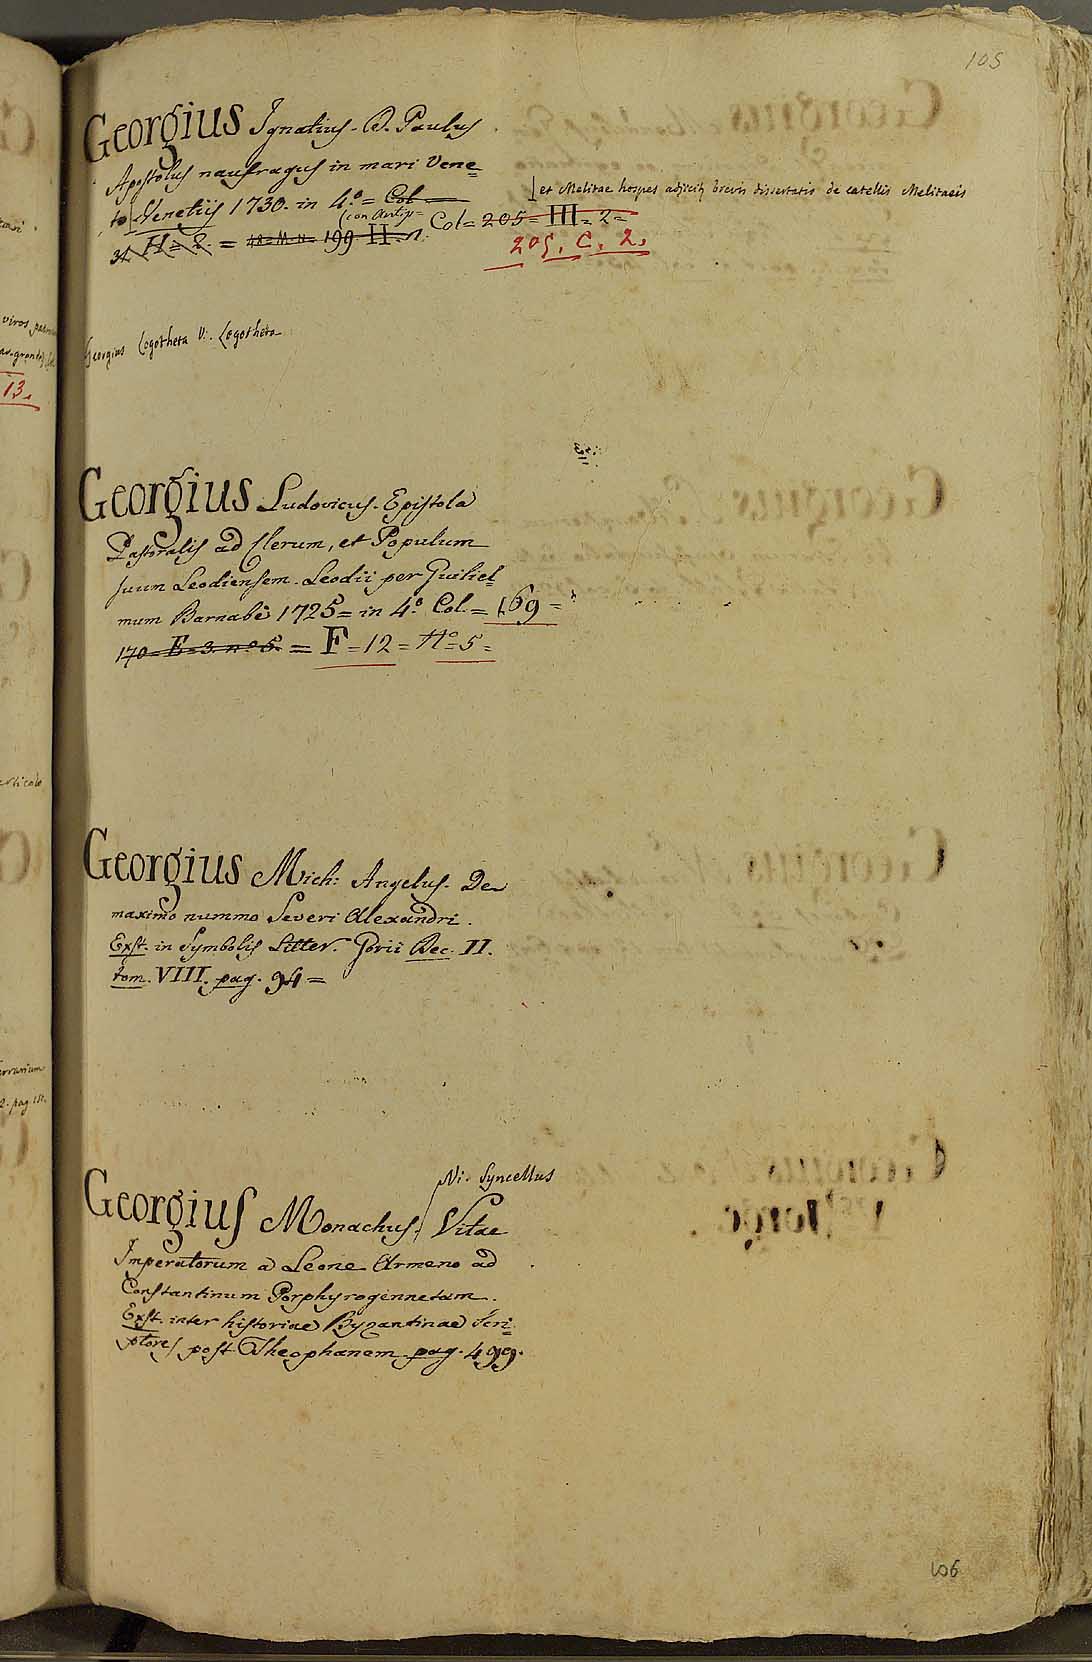 105
Georgius Ignatius. D. Paulus
Apostolus naufragus in mari Vene=
to Venetiis 1730. in 4.º = Col
et Melitae hospes adjicit brevis dissertatis de catellis Melitaeis
Col = 205 = III = 2 =
31. H = 2. = 199 H. n.
205. C. 2.
Georgius Logotheta V. Logotheta
Georgius Ludovicus. Epistola
Pastoralis ad Clerum, et Populum
suum Leodiensem. Leodii per Guiliel
mum Barnabè 1725 = in 4.º Col. = 169 =
170 = E = 3. nº 5. = F = 12 = Nº 5 =
Georgius Mich: Angelus. De
maximo nummo Severi Alexandri.
Exst. in Symbolis Litter. Gorii Dec. II.
tom. VIII. pag. 94 =
Vi. Syncellus
Georgius Monachus. Vitae
Imperatorum a Leone Armeno ad
Constantinum Porphyrogennetam.
Exst. inter historiae Byzantinae Scri=
ptores post Theophanem pag. 499.
106